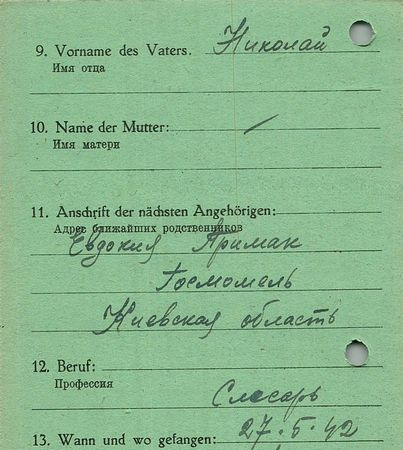 9. Vorname des Vaters. Николай
Имя отца
10. Name der Mutter: —
Имя матери
11. Anschrift der nächsten Angehörigen:
Адрес ближайших родственников
Евдокия Примак
Госмомель
Киевская область
12. Beruf:
Профессия
Слесарь
13. Wann und wo gefangen: 27.5.42